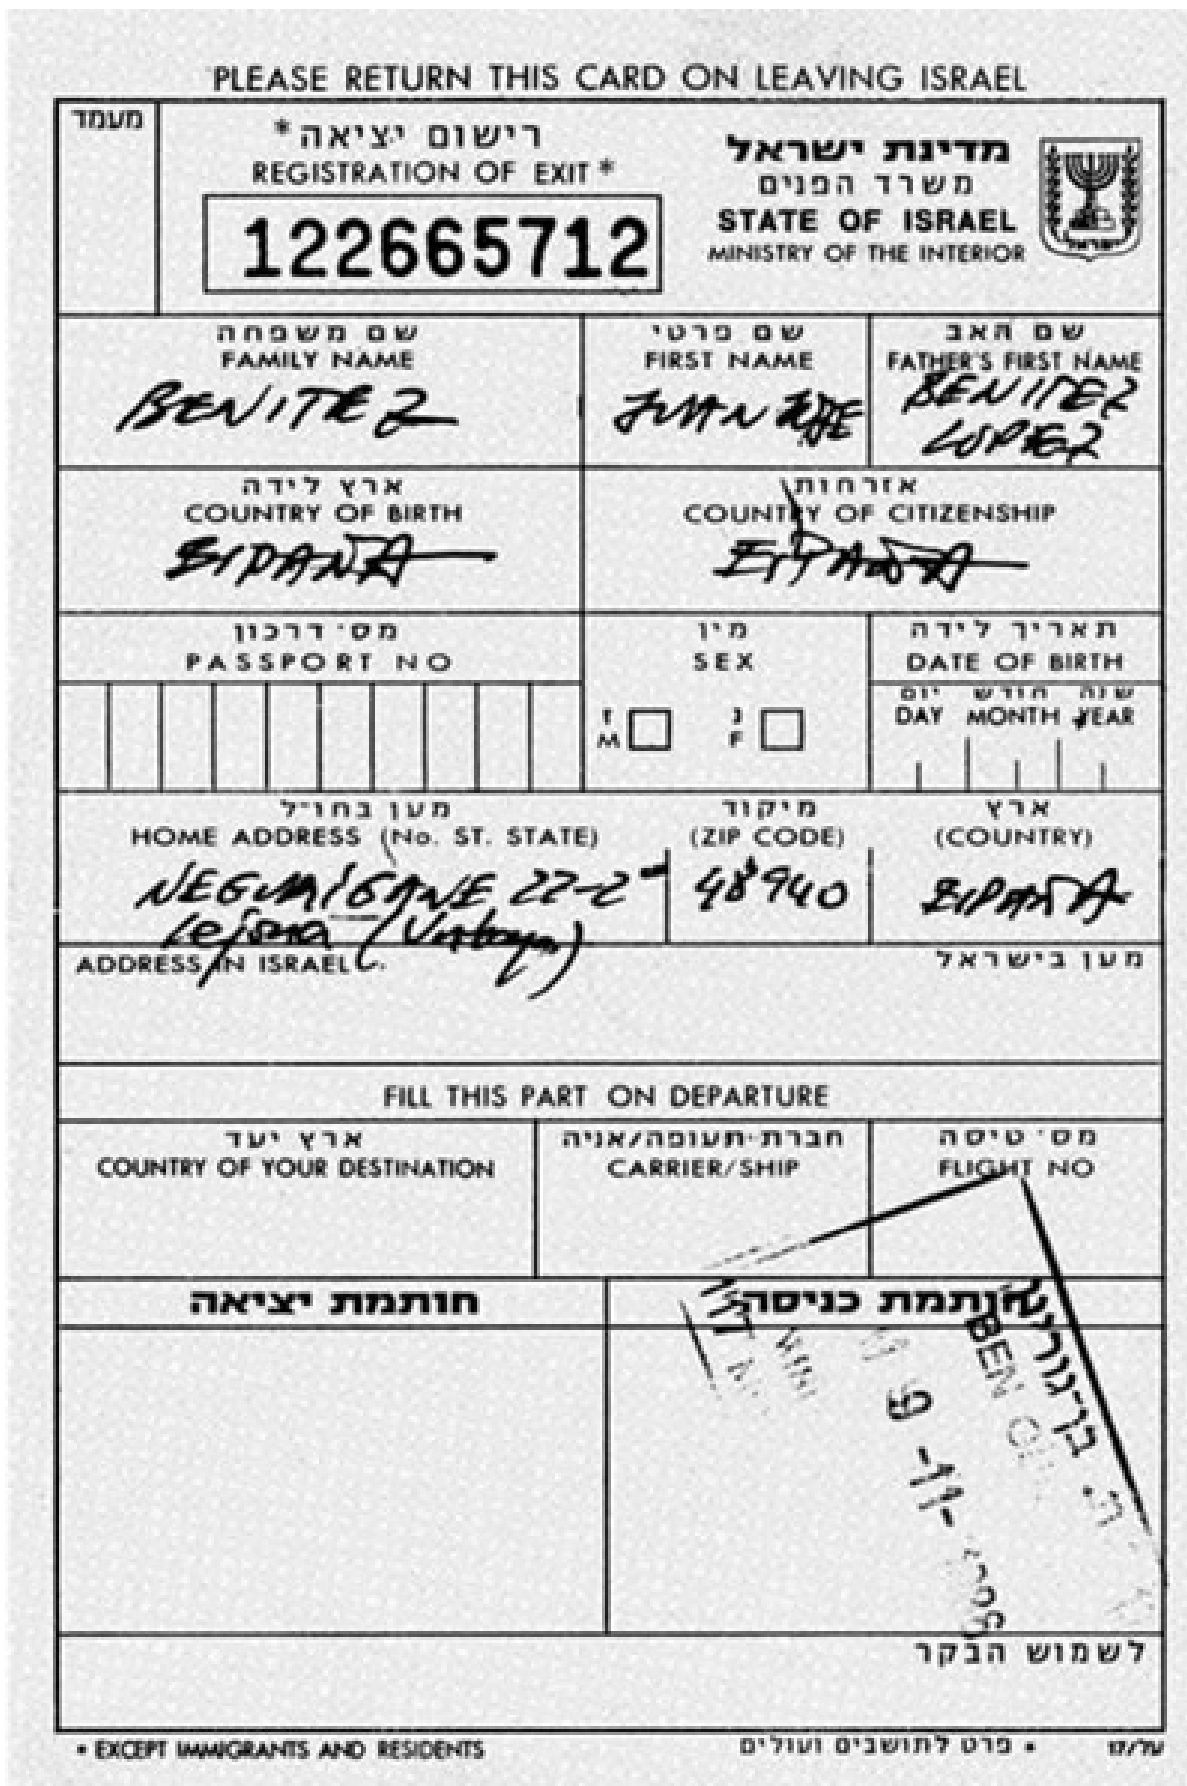 PLEASE RETURN THIS CARD ON LEAVING ISRAEL
מעמד
רישום יציאה*
REGISTRATION OF EXIT*
122665712
מדינת ישראל
משרד הפנים
STATE OF ISRAEL
MINISTRY OF THE INTERIOR
שם משפחה
FAMILY NAME
BENITEZ
שם פרטי
FIRST NAME
JUAN JOSE
שם האב
FATHER'S FIRST NAME
BENITEZ
LOPEZ
ארץ לידה
COUNTRY OF BIRTH
ESPAÑA
אזרחות
COUNTRY OF CITIZENSHIP
ESPAÑA
מס' דרכון
PASSPORT NO
מין
SEX
ז
M
נ
F
תאריך לידה
DATE OF BIRTH
יום חודש שנה
DAY MONTH YEAR
מען בחו"ל
HOME ADDRESS (No. ST. STATE)
22-2
Lejona
מיקוד
(ZIP CODE)
48940
ארץ
(COUNTRY)
ESPAÑA
ADDRESS IN ISRAEL
מען בישראל
FILL THIS PART ON DEPARTURE
ארץ יעד
COUNTRY OF YOUR DESTINATION
חברת-תעופה/אניה
CARRIER/SHIP
מס' טיסה
FLIGHT NO
חותמת יציאה
חותמת כניסה
בן-גוריון
BEN
9 -11-
לשמוש הבקר
* EXCEPT IMMIGRANTS AND RESIDENTS
* פרט לתושבים ועולים
על/17